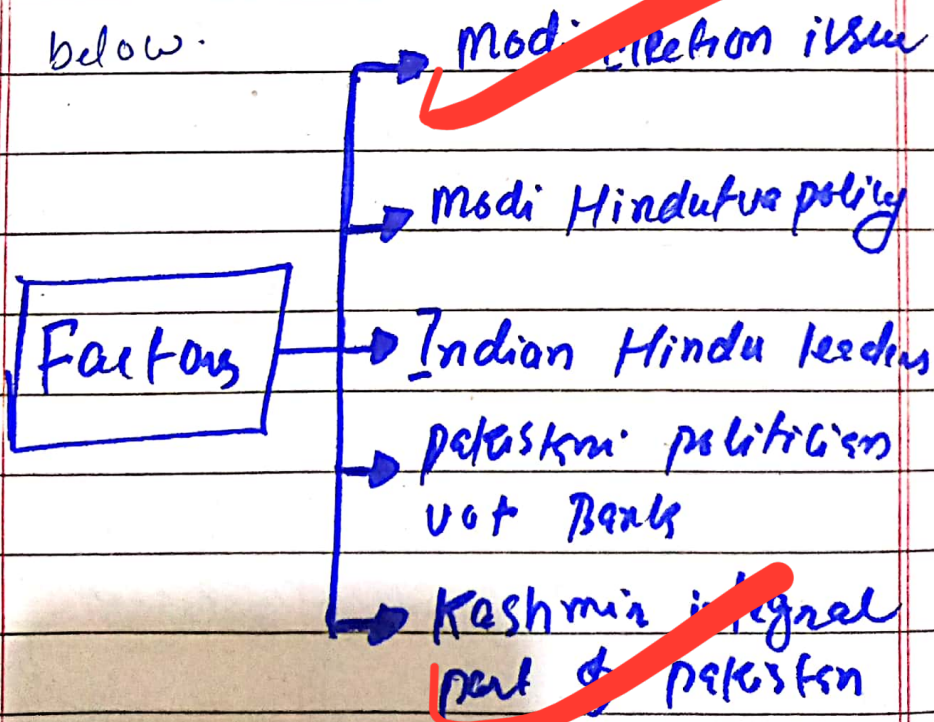 below.
Modi election issue
Modi Hindutva policy
Factors
Indian Hindu leaders
pakistani politician
vot Bank
Kashmir integral
part of pakistan